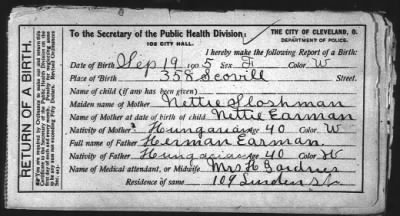 To the Secretary of the Public Health Division:
102 CITY HALL.
THE CITY OF CLEVELAND, O.
DEPARTMENT OF POLICE.
I hereby make the following Report of a Birth:
Date of Birth Sep 19 1905 Sex F Color W
Place of Birth 358 Scovill Street.
Name of child (if any has been given)
Maiden name of Mother Nettie Sloshman
Name of Mother at date of birth of child Nettie Earman
Nativity of Mother Hungarian age 40 Color W
Full name of Father Herman Earman
Nativity of Father Hungarian age 40 Color W
Name of Medical attendant, or Midwife Mrs H Gardner
Residence of same 109 Linden St.
RETURN OF A BIRTH.